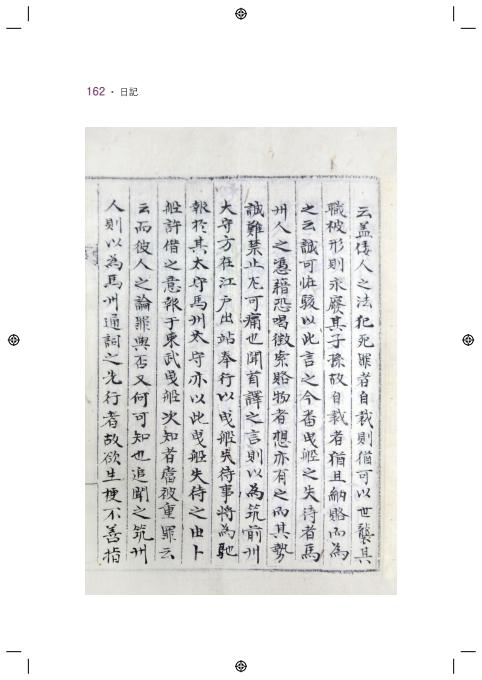 162 • 日記
云盖倭人之法犯死罪者自裁則猶可以世襲其
職被形則永廢其子孫故自裁者猶且納賂而為
之云誠可恠駭以此言之今番曳船之失待者馬
州人之憑藉恐喝徵索賂物者想亦有之而其勢
誠難禁止尤可痛也聞首譯之言則以為筑前州
大守方在江户出站奉行以曳船失待事将為馳
報於其太守馬州太守亦以此曳船失待之由卜
船許借之意報于東武曳船次知者當被重罪云
云而彼人之論罪與否又何可知也追聞之筑州
人則以為馬州通詞之先行者故欲生梗不善指